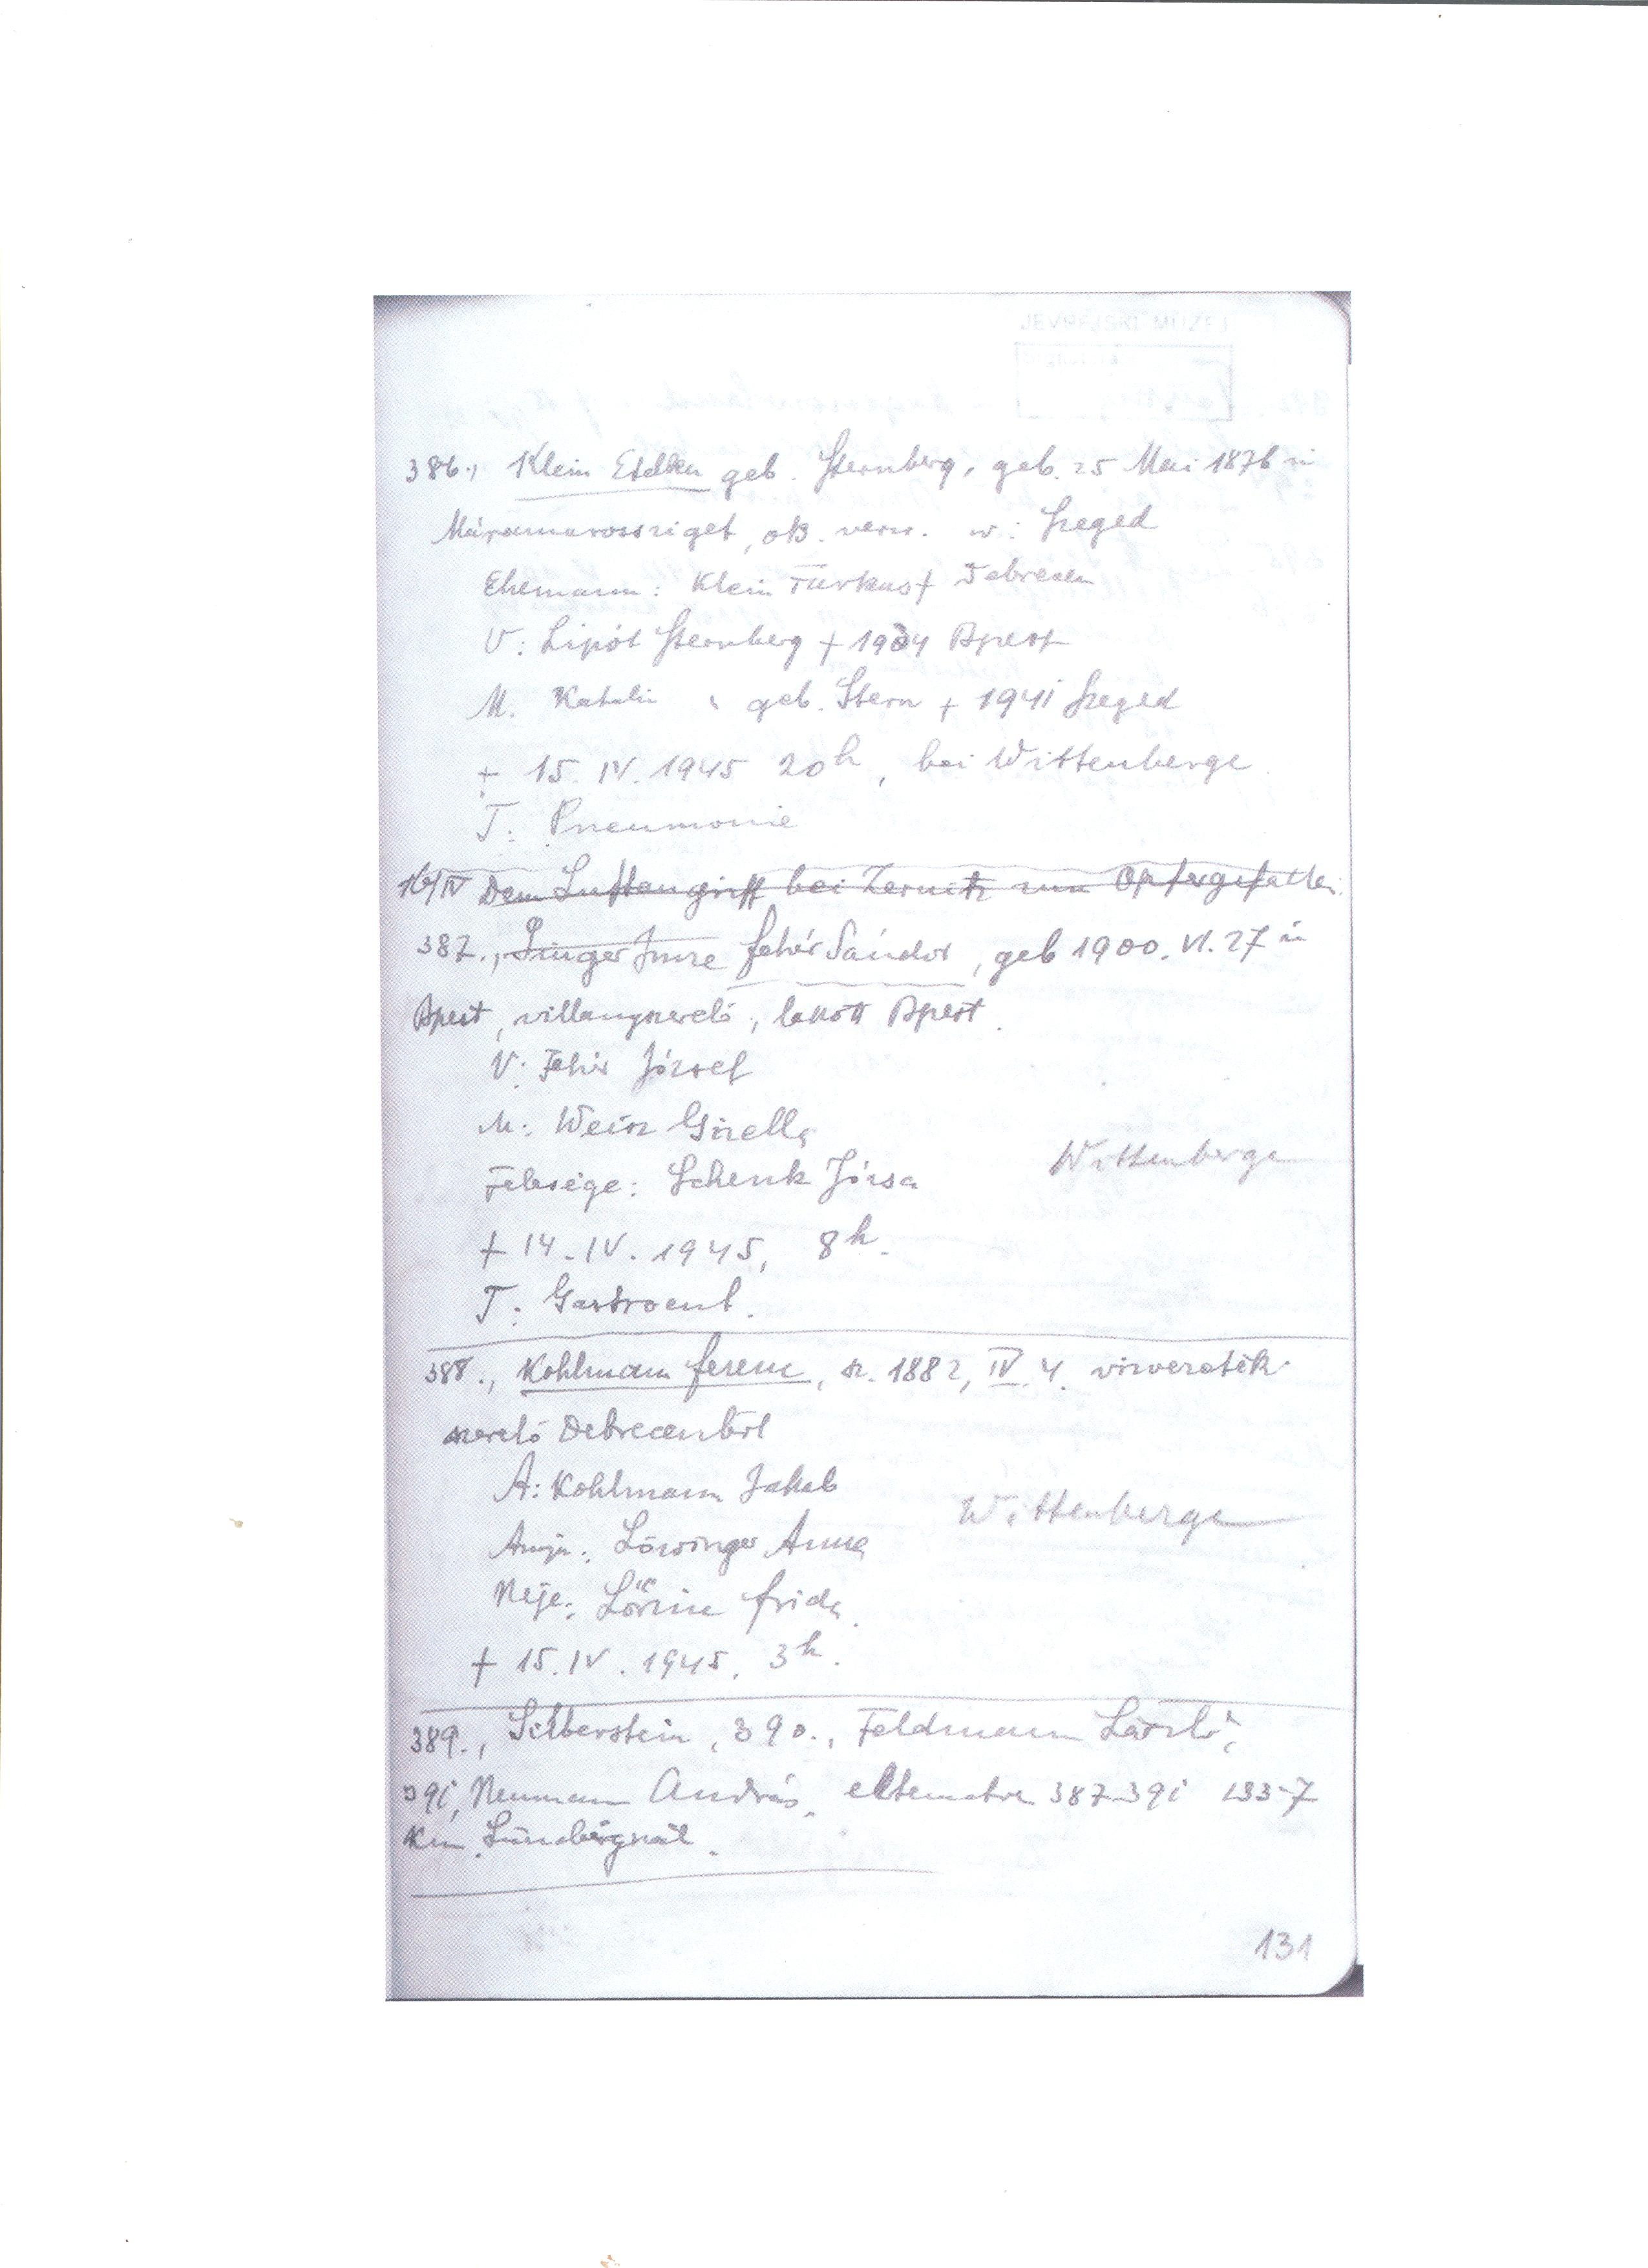 JEVREJSKI MUZEJ
386., Klein Etelka geb. Sternberg, geb. 25 Mai 1876 in
Máramarossziget, oB. verw. w: Szeged
Ehemann: Klein Farkas † Debrecen
V: Lipót Sternberg † 1934 Bpest
M. Katalin " geb. Stern + 1941 Szeged
+ 15. IV. 1945 20h, bei Wittenberge
T: Pneumonie
16/IV Dem Luftangriff bei Zernitz zum Opfer gefallen
387., Singer Imre Fehér Sándor, geb 1900. VI. 27 in
Bpest, villanyszerelő, lakott Bpest.
V: Fehér József
M: Weisz Gizella
Felesége: Schenk Józsa
Wittenberge
+ 14. IV. 1945, 8h.
T: Gastroent.
388., Kohlmann Ferenc, sz. 1882, IV. 4. vízvezeték
szerelő Debrecenből
A: Kohlmann Jakab
Wittenberge
Anyja: Lövinger Anna
Neje: Lőrinc Frida
+ 15. IV. 1945. 3h.
389., Silberstein, 390., Feldmann László,
391, Neumann András, eltemetve 387-391 193-7
Km. Lünebergnél.
131